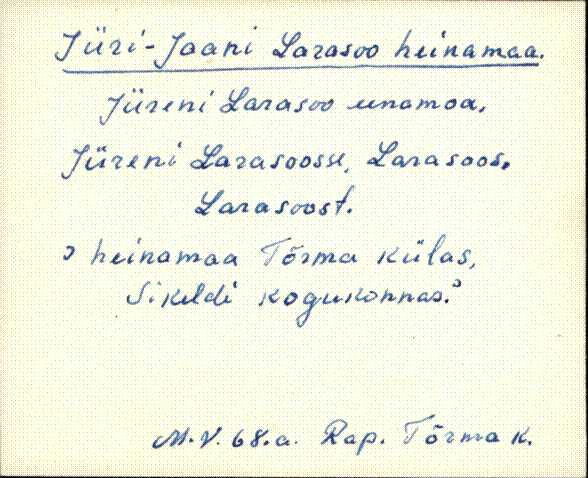 Jüri-Jaani Larasoo heinamaa.
Jüreni Larasoo einamoa,
Jüreni Larasoosse, Larasoos,
Larasoost.
> heinamaa Tõrma külas,
Sikeldi kogukonnas.>
M.V. 68.a. Rap. Tõrma k.